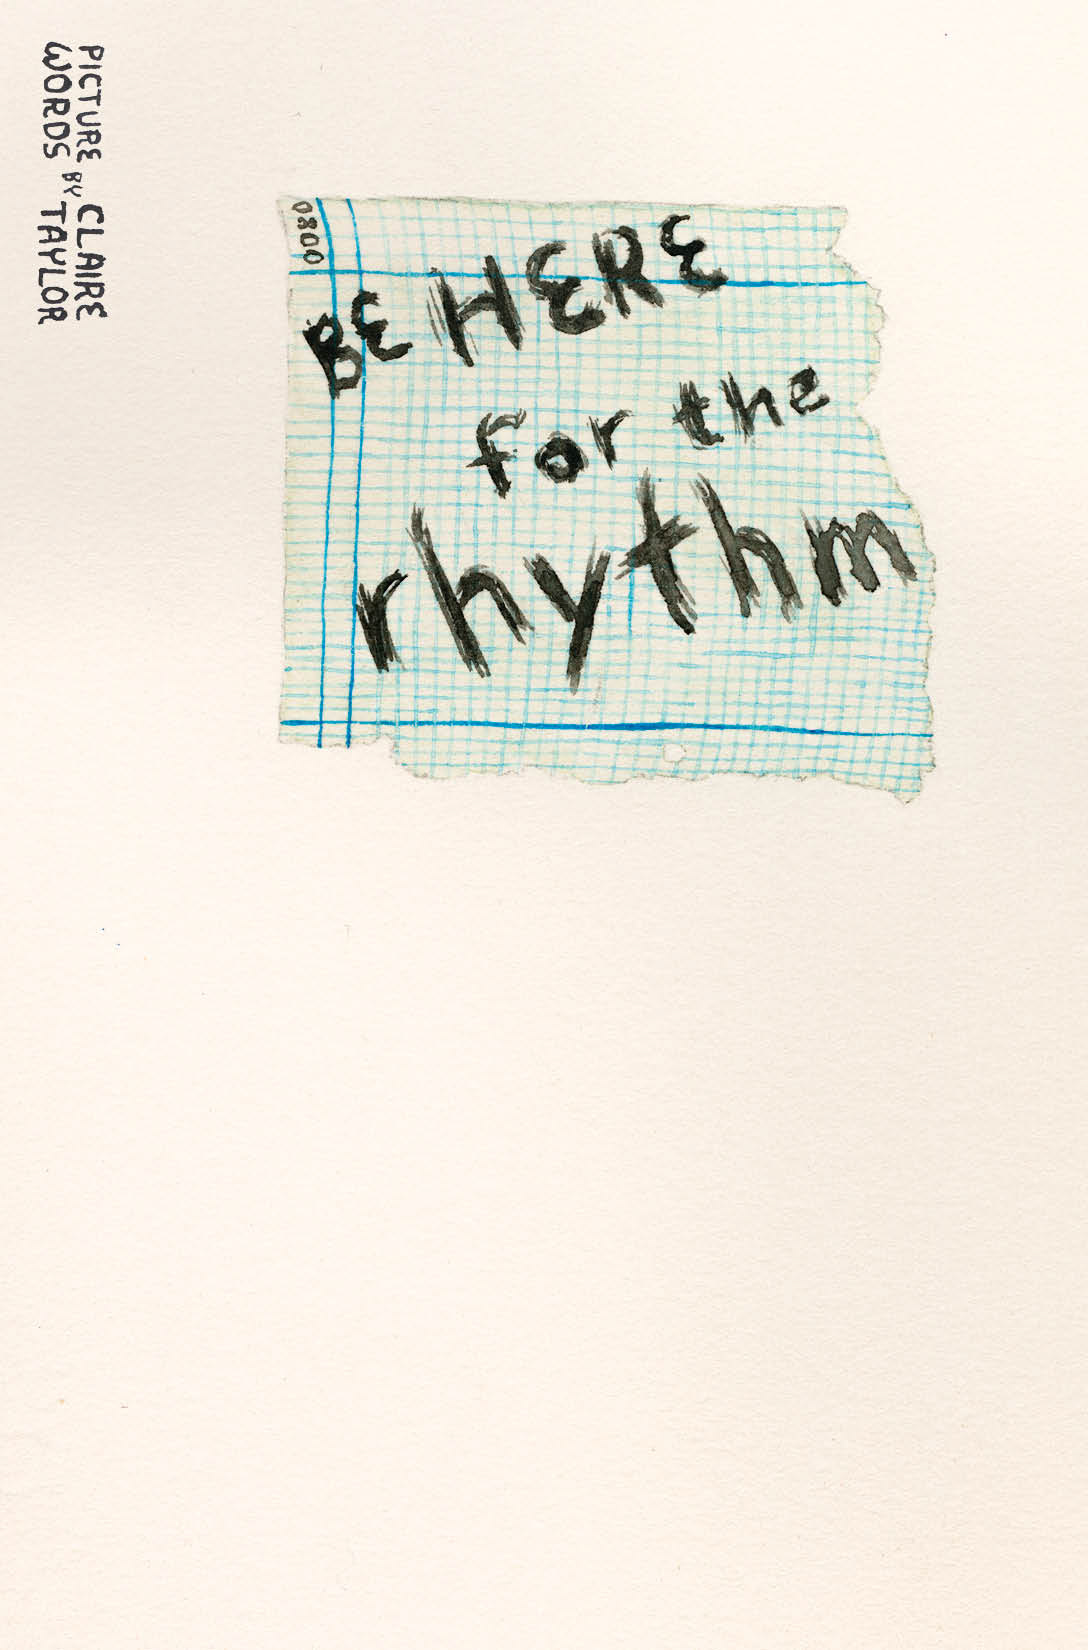 PICTURE BY CLAIRE
WORDS TAYLOR
0800
BE HERE
for the
rhythm